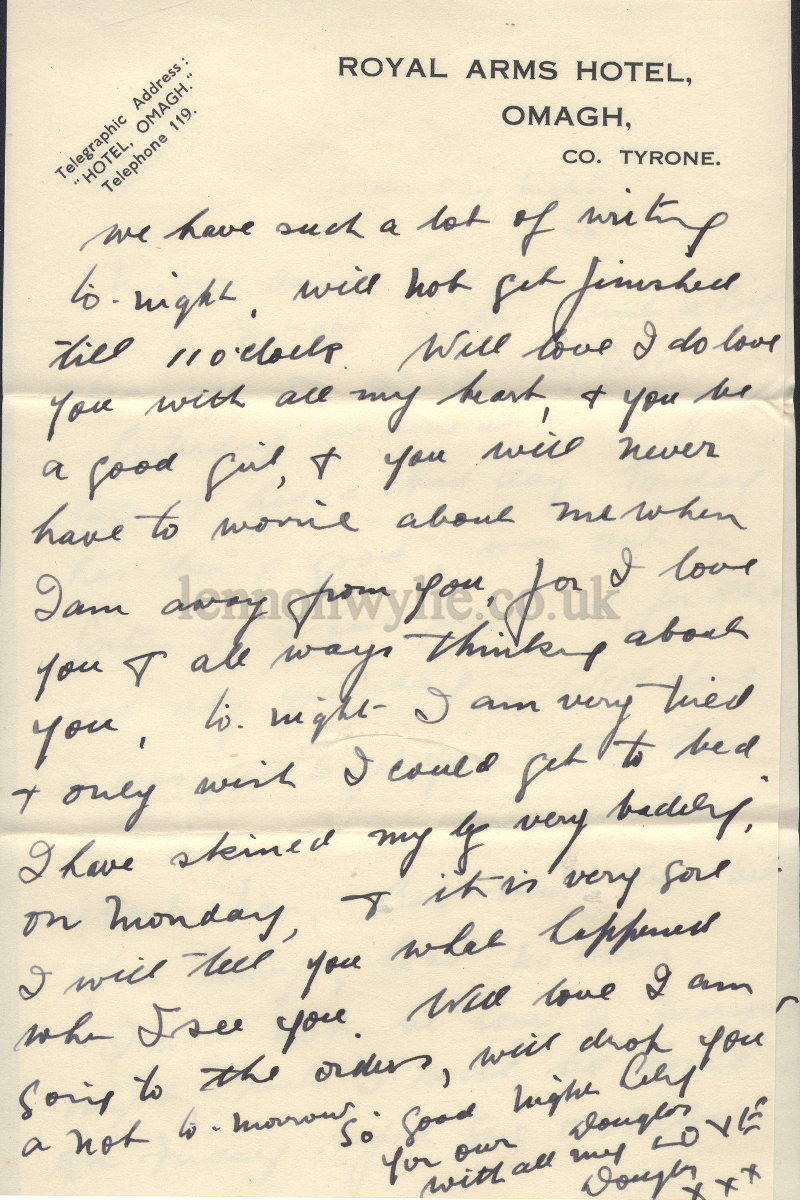 Telegraphic Address:
"HOTEL, OMAGH."
Telephone 119.
ROYAL ARMS HOTEL,
OMAGH,
CO. TYRONE.
we have such a lot of writing
to-night, will not get finished
till 11 o'clock. Well love I do love
you with all my heart, & you be
a good girl, & you will never
have to worrie about me when
I am away from you, for I love
you & all ways thinking about
you, to-night I am very tired
& only wish I could get to bed.
I have skined my leg very badly,
on Monday, & it is very sore
I will tell you what happened
when I see you. Well love I am
going to the orders, will drop you
a not to-morrow so good night
for our Douglas
with all my LOVE
Douglas
x x x
lennonwylie.co.uk